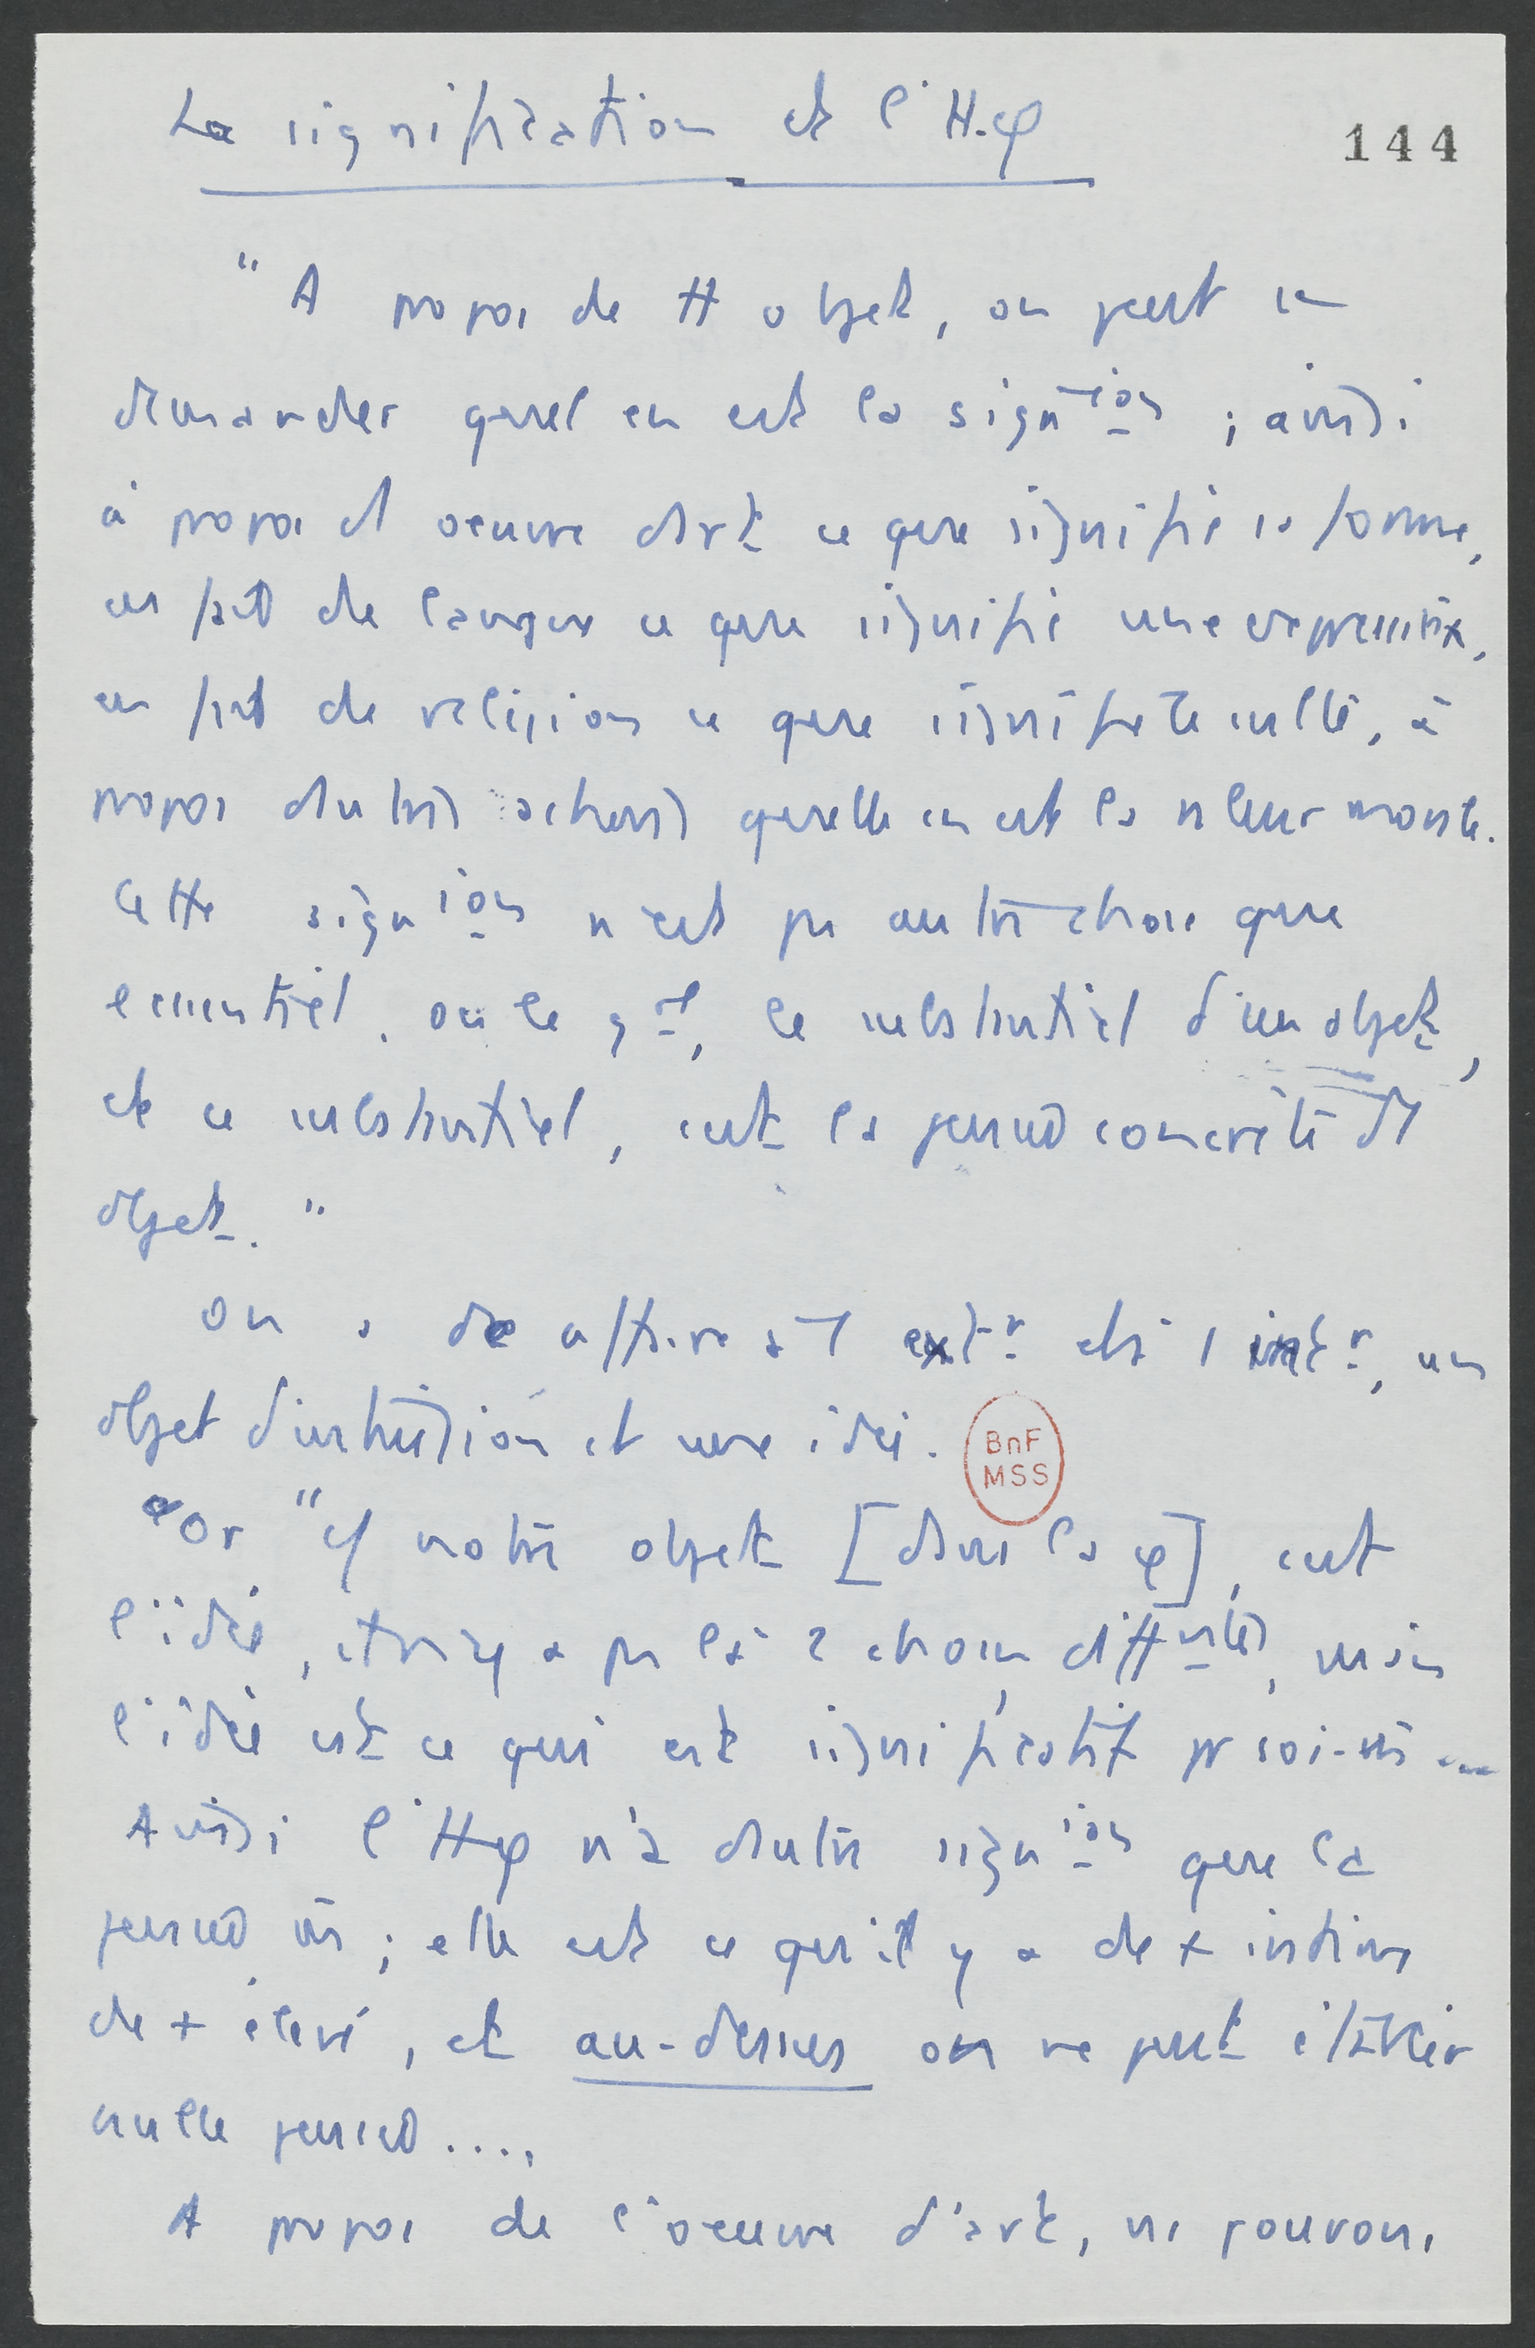 La signification et l'H-φ
144
"A propos de tt objet, on peut se
demander quel en est la sign^ion ; ainsi
à propos d l oeuvre d'art ce que signifie la forme,
en fait de langue ce que signifie une expression,
en fait de religion ce que signifie le culte, à
propos d'autres actions quelle en est la valeur morale.
Cette sign^ion n'est pas autre chose que
l'essentiel, ou le g^al, le substantiel d'un objet,
et ce substantiel, c'est la pensée concrète de l'
objet."
On a affaire à l' ext^r et à l'int^r, un
objet d'intuition et une idée.
BnF
MSS
Or "si notre objet [dans la φ], c'est
l'idée, il n'y a pas là 2 choses diff^entes, mais
l'idée est ce qui est significatif pr soi-m̂ ...
Ainsi l'Hφ n'a d'autre sign^ion que la
pensée m̂ ; elle est ce qu'il y a de + intime
de + élevé, et au-dessus on ne peut établir
nulle pensée ....
A propos de l'oeuvre d'art, ns pouvons